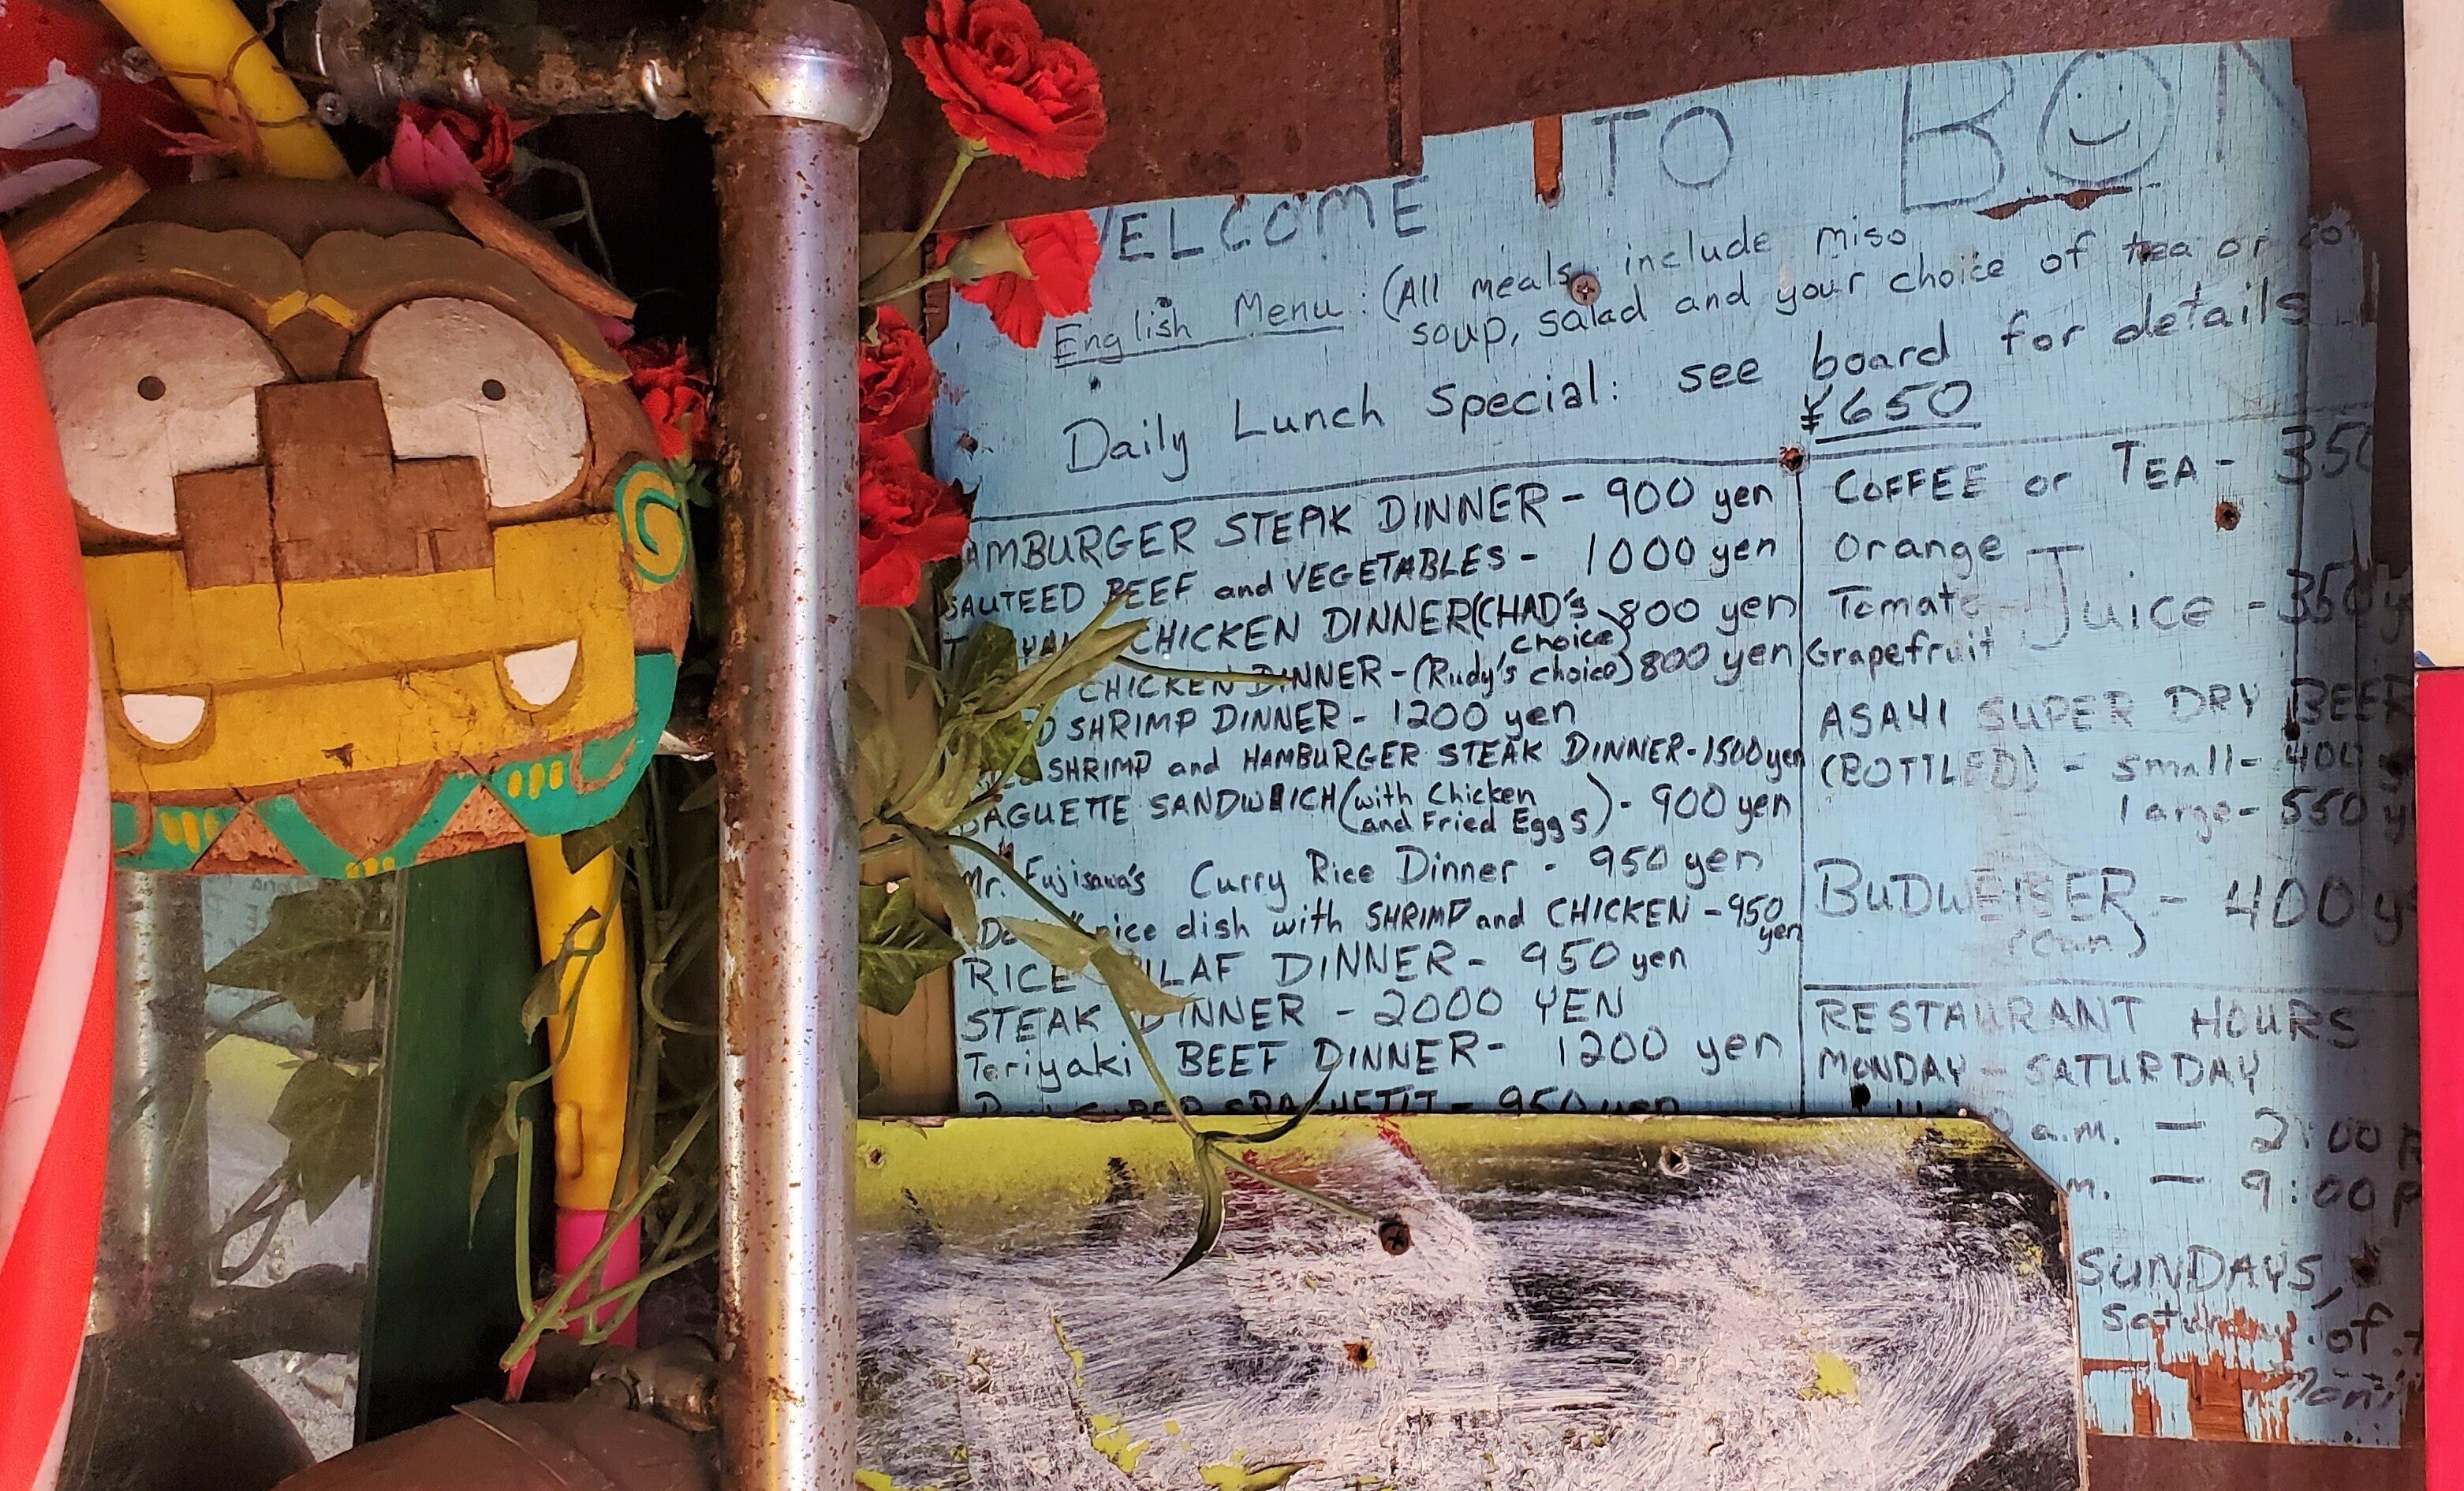 ELCOME TO BON
English Menu : (All meals include miso
soup, salad and your choice of tea or co
Daily Lunch Special: see board for details
¥650
AMBURGER STEAK DINNER - 900 yen
SAUTEED BEEF and VEGETABLES - 1000 yen
CHICKEN DINNER (CHAD'S choice) 800 yen
CHICKEN DINNER - (Rudy's choice) 800 yen
D SHRIMP DINNER - 1200 yen
SHRIMP and HAMBURGER STEAK DINNER - 1500 yen
BAGUETTE SANDWICH (with Chicken and Fried Eggs) - 900 yen
Mr. Fujisawa's Curry Rice Dinner - 950 yen
rice dish with SHRIMP and CHICKEN - 950 yen
RICE ILAF DINNER - 950 yen
STEAK DINNER - 2000 YEN
Teriyaki BEEF DINNER - 1200 yen
SUPER SPAGHETTI - 950 yen
COFFEE or TEA - 350
Orange
Tomato Juice - 350 y
Grapefruit
ASAHI SUPER DRY BEER
(BOTTLED) - small - 400 y
large - 550 y
BUDWEISER - 400 y
(can)
RESTAURANT HOURS
MONDAY - SATURDAY
a.m. — 2:00 P
m. — 9:00 P
SUNDAYS,
Saturday of